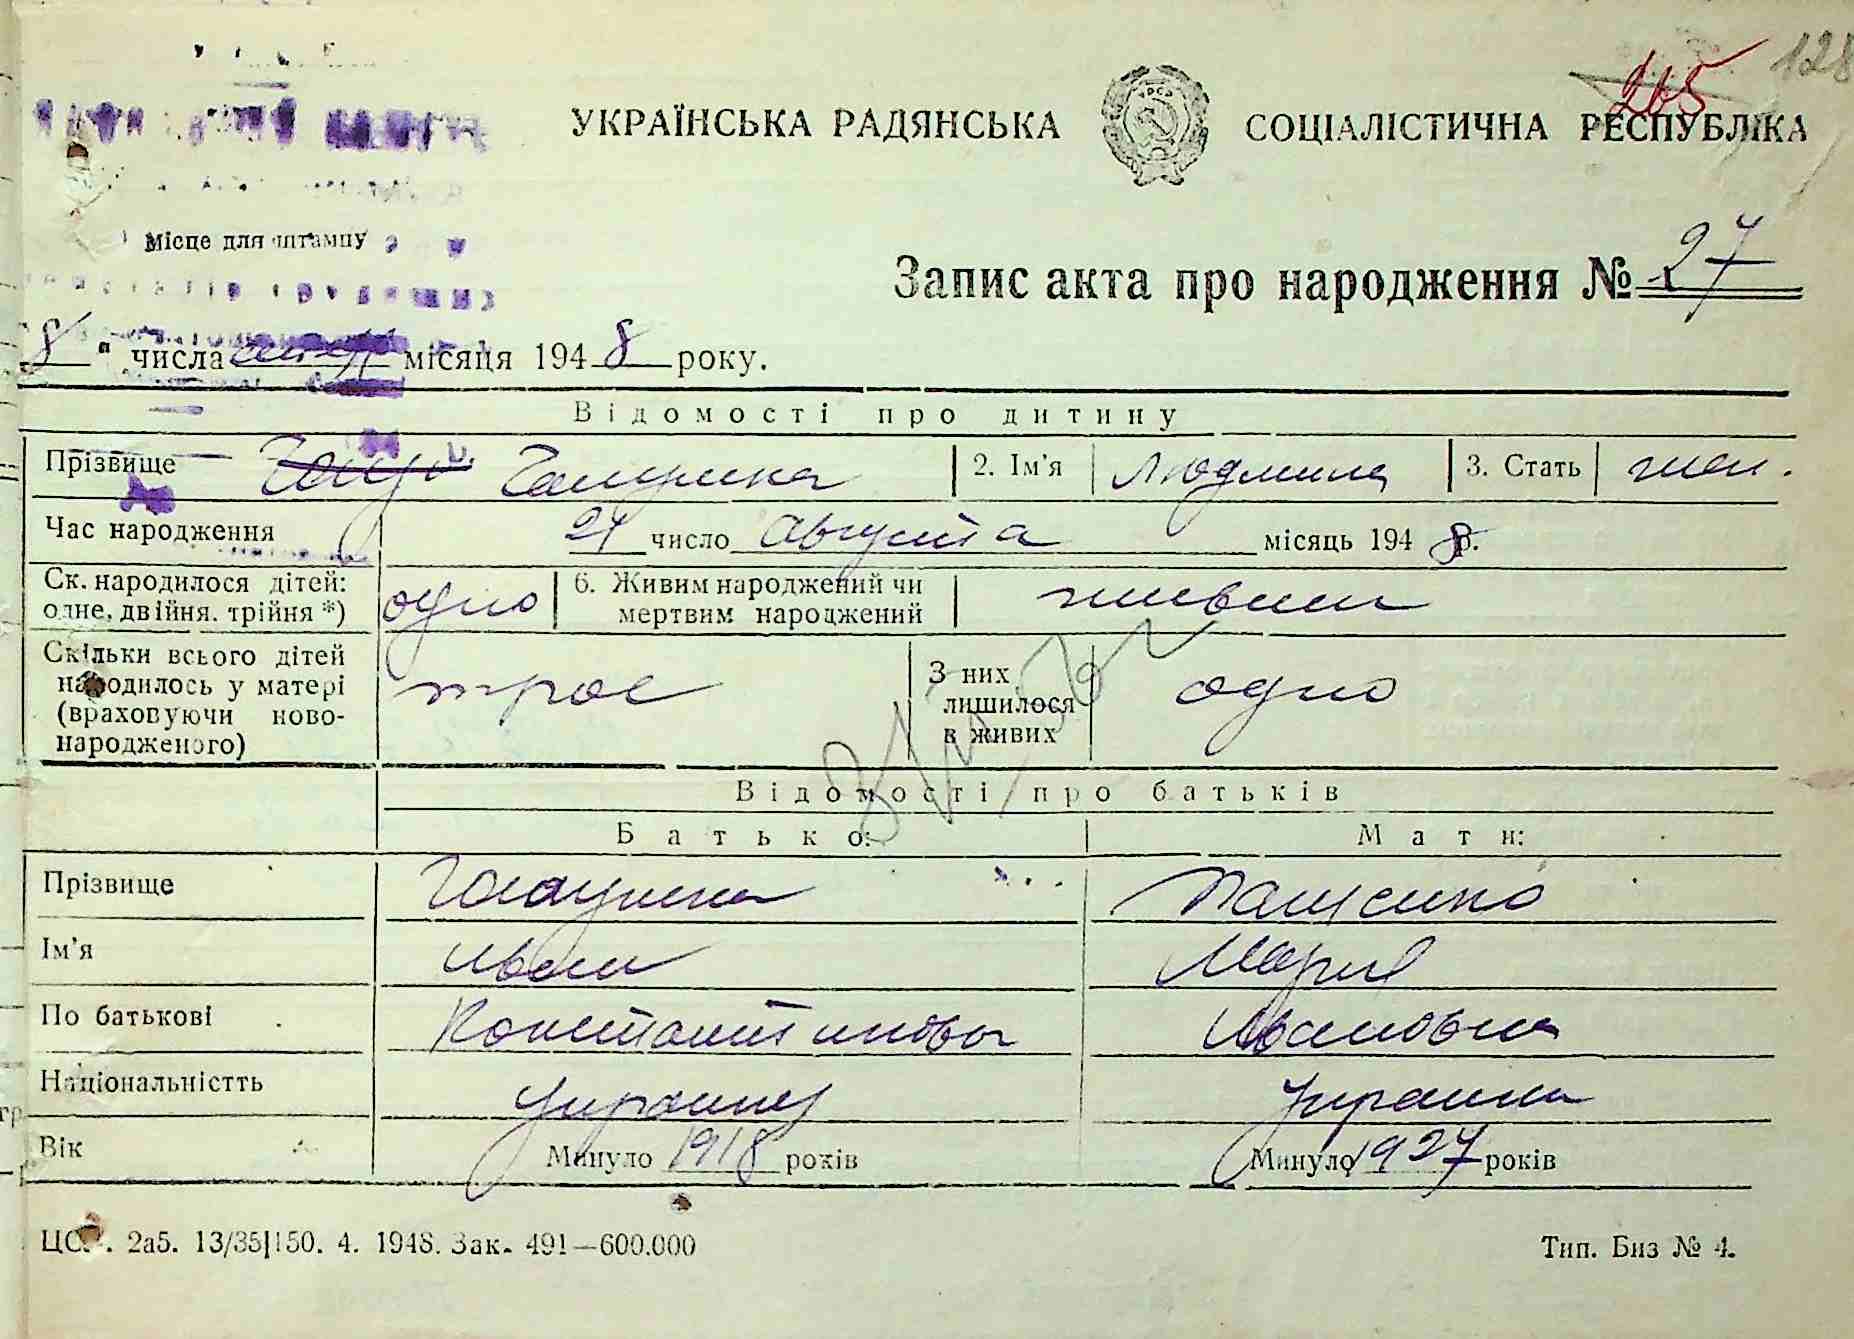 265 128
УКРАЇНСЬКА РАДЯНСЬКА СОЦІАЛІСТИЧНА РЕСПУБЛІКА
УРСР
Місце для штампу
Запис акта про народження № 27
8 " числа місяця 1948 року.
Відомості про дитину
Прізвище 2. Ім'я Людмила 3. Стать жен.
Час народження 21 число Августа місяць 1948 р.
Ск. народилося дітей: одно 6. Живим народжений чи живим
одне, двійня, трійня *) мертвим народжений
Скільки всього дітей трое З них одно
народилось у матері лишилося
(враховуючи ново- в живих
народженого)
Відомості про батьків
Батько: Мати:
Прізвище Пащенко
Ім'я Иван Мария
По батькові Константинович Ивановна
Національністть Украинец Украинка
Вік Минуло 1918 років Минуло 1927 років
2а5. 13/35|150. 4. 1948. Зак. 491—600.000 Тип. Биз № 4.